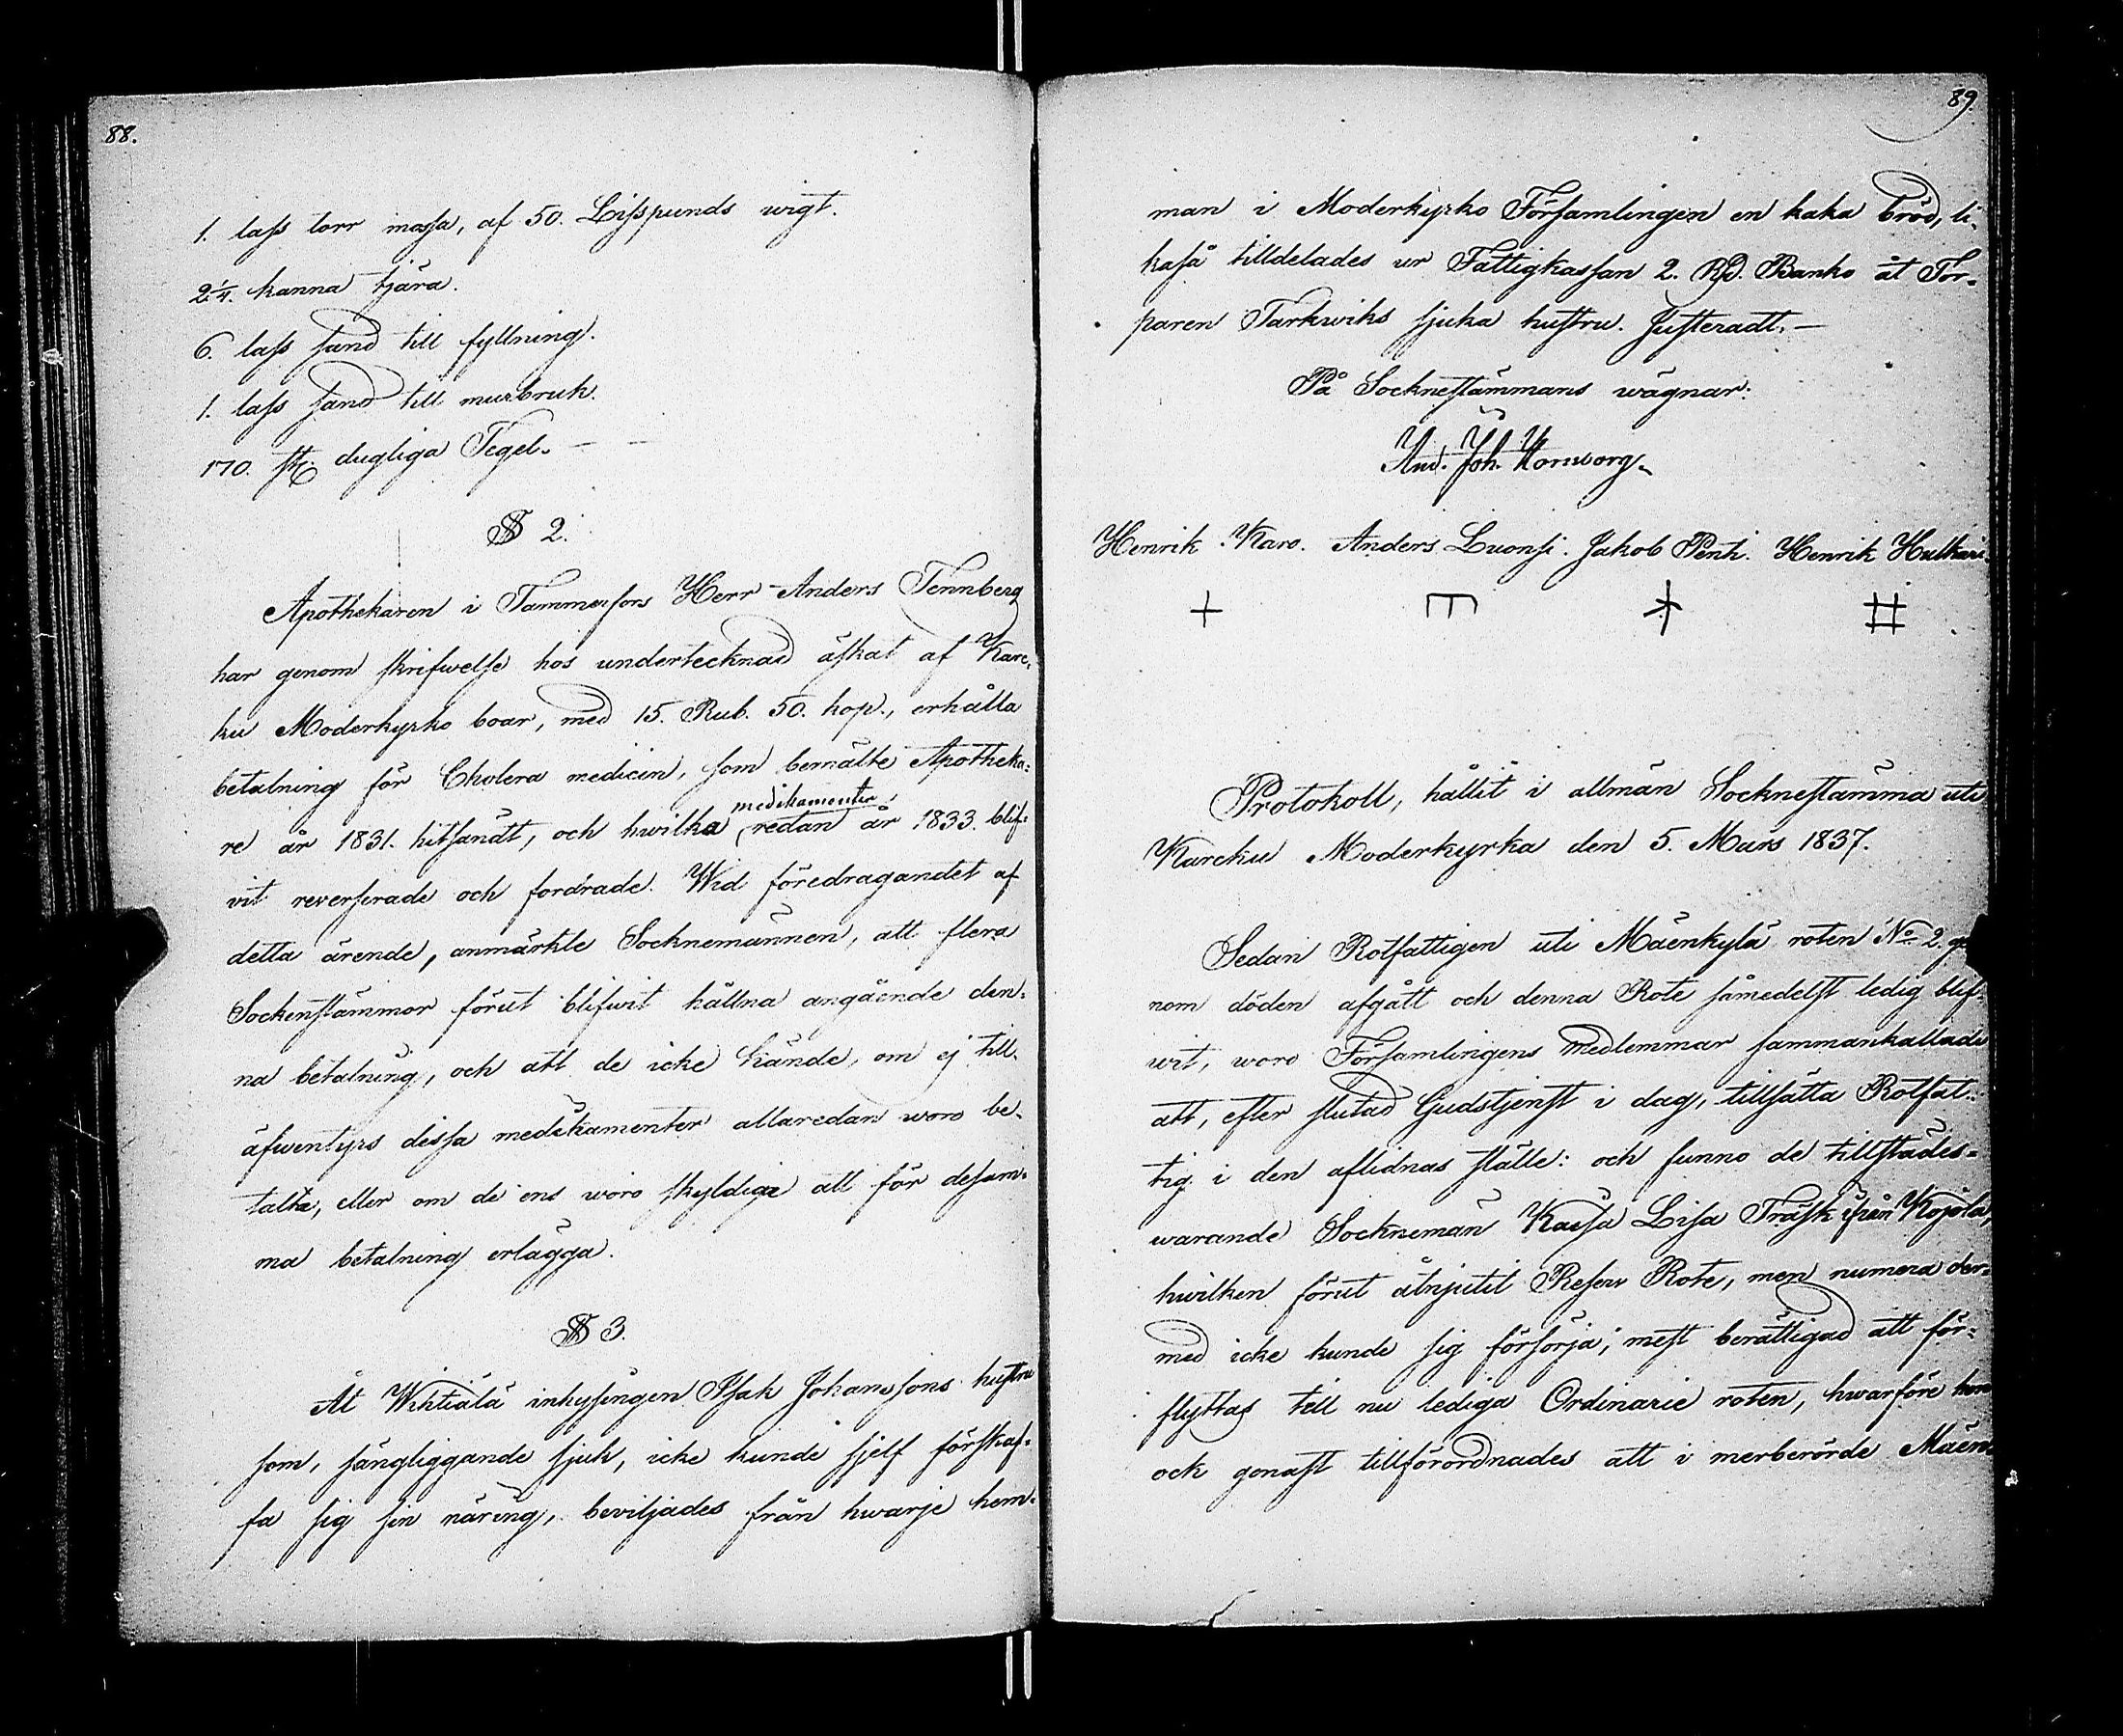 88.
1. lass torr mossa, af 50. Lisspunds wigt.
2 1/4. kanna tjära.
6. lass sand till fyllning.
1. lass sand till murbruk.
170. st. dugliga Tegel. —
§ 2.
Apothekaren i Tammerfors Herr Anders Tennberg
har genom skrifwelse hos undertecknad äskat af Karc-
ku Moderkyrko boar, med 15. Rub. 50. kop., erhålla
betalning för Cholera medicin, som bemälte Apotheka-
re år 1831. hitsändt, och hwilka medikamenter redan år 1833. blif-
vit reverserade och fordrade. Wid föredragandet af
detta ärende, anmärkte Socknemännen, att flera
Sockenstämmor förut blifwit hållna angående den-
na betalning, och att de icke kände, om ej till-
äfwentyrs dessa medikamenter allaredan woro be-
talta, eller om de ens woro skyldiga att för desam-
ma betalning erlägga.
§ 3.
At Wihtiälä inhysingen Isak Johanssons hustru
som, sängliggande sjuk, icke kunde sjelf förskaf-
fa sig sin näring, beviljades från hwarje hem-
89.
man i Moderkyrko Församlingen en kaka bröd, li-
kaså tilldelades ur Fattigkassan 2. Rd. Banko åt Tor-
paren Tarkwiks sjuka hustru. Justeradt. —
På Socknestämmans wägnar:
And. Joh. Hornborg.
Henrik Karo. Anders Luonsi. Jakob Penti. Henrik Hulkari.
Protokoll, hållit i allmän Socknestämma uti
Karcku Moderkyrka den 5. Mars 1837.
Sedan Rotfattigen uti Mäenkylä roten No 2. ge-
nom döden afgått och denna Rote såmedelst ledig blif-
wit, woro Församlingens medlemmar sammankallade
att, efter slutad Gudstjenst i dag, tillsätta Rotfat-
tig i den aflidnas ställe: och funno de tillstädes-
warande Socknemän Kaisa Lisa Träsk ifrån Kojola,
hwilken förut åtnjutit Reserv Rote, men numera der-
med icke kunde sig försörja, mest berättigad att för-
flyttas till nu lediga Ordinarie roten, hwarföre hon
ock genast tillförordnades att i merberörde Mäen-